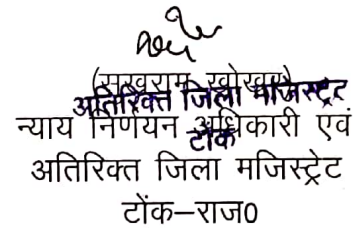 (सुखराम खोखर)
अतिरिक्त जिला मजिस्ट्रेट
टोंक
न्याय निर्णयन अधिकारी एवं
अतिरिक्त जिला मजिस्ट्रेट
टोंक–राज0